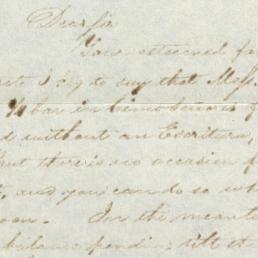 Dear Sir
Your esteemed fa
I beg to say that Mess
bar in
d without an Escritura,
but there is no occasion f
, and you can do so wh
oon. In the meant
balance pending till it